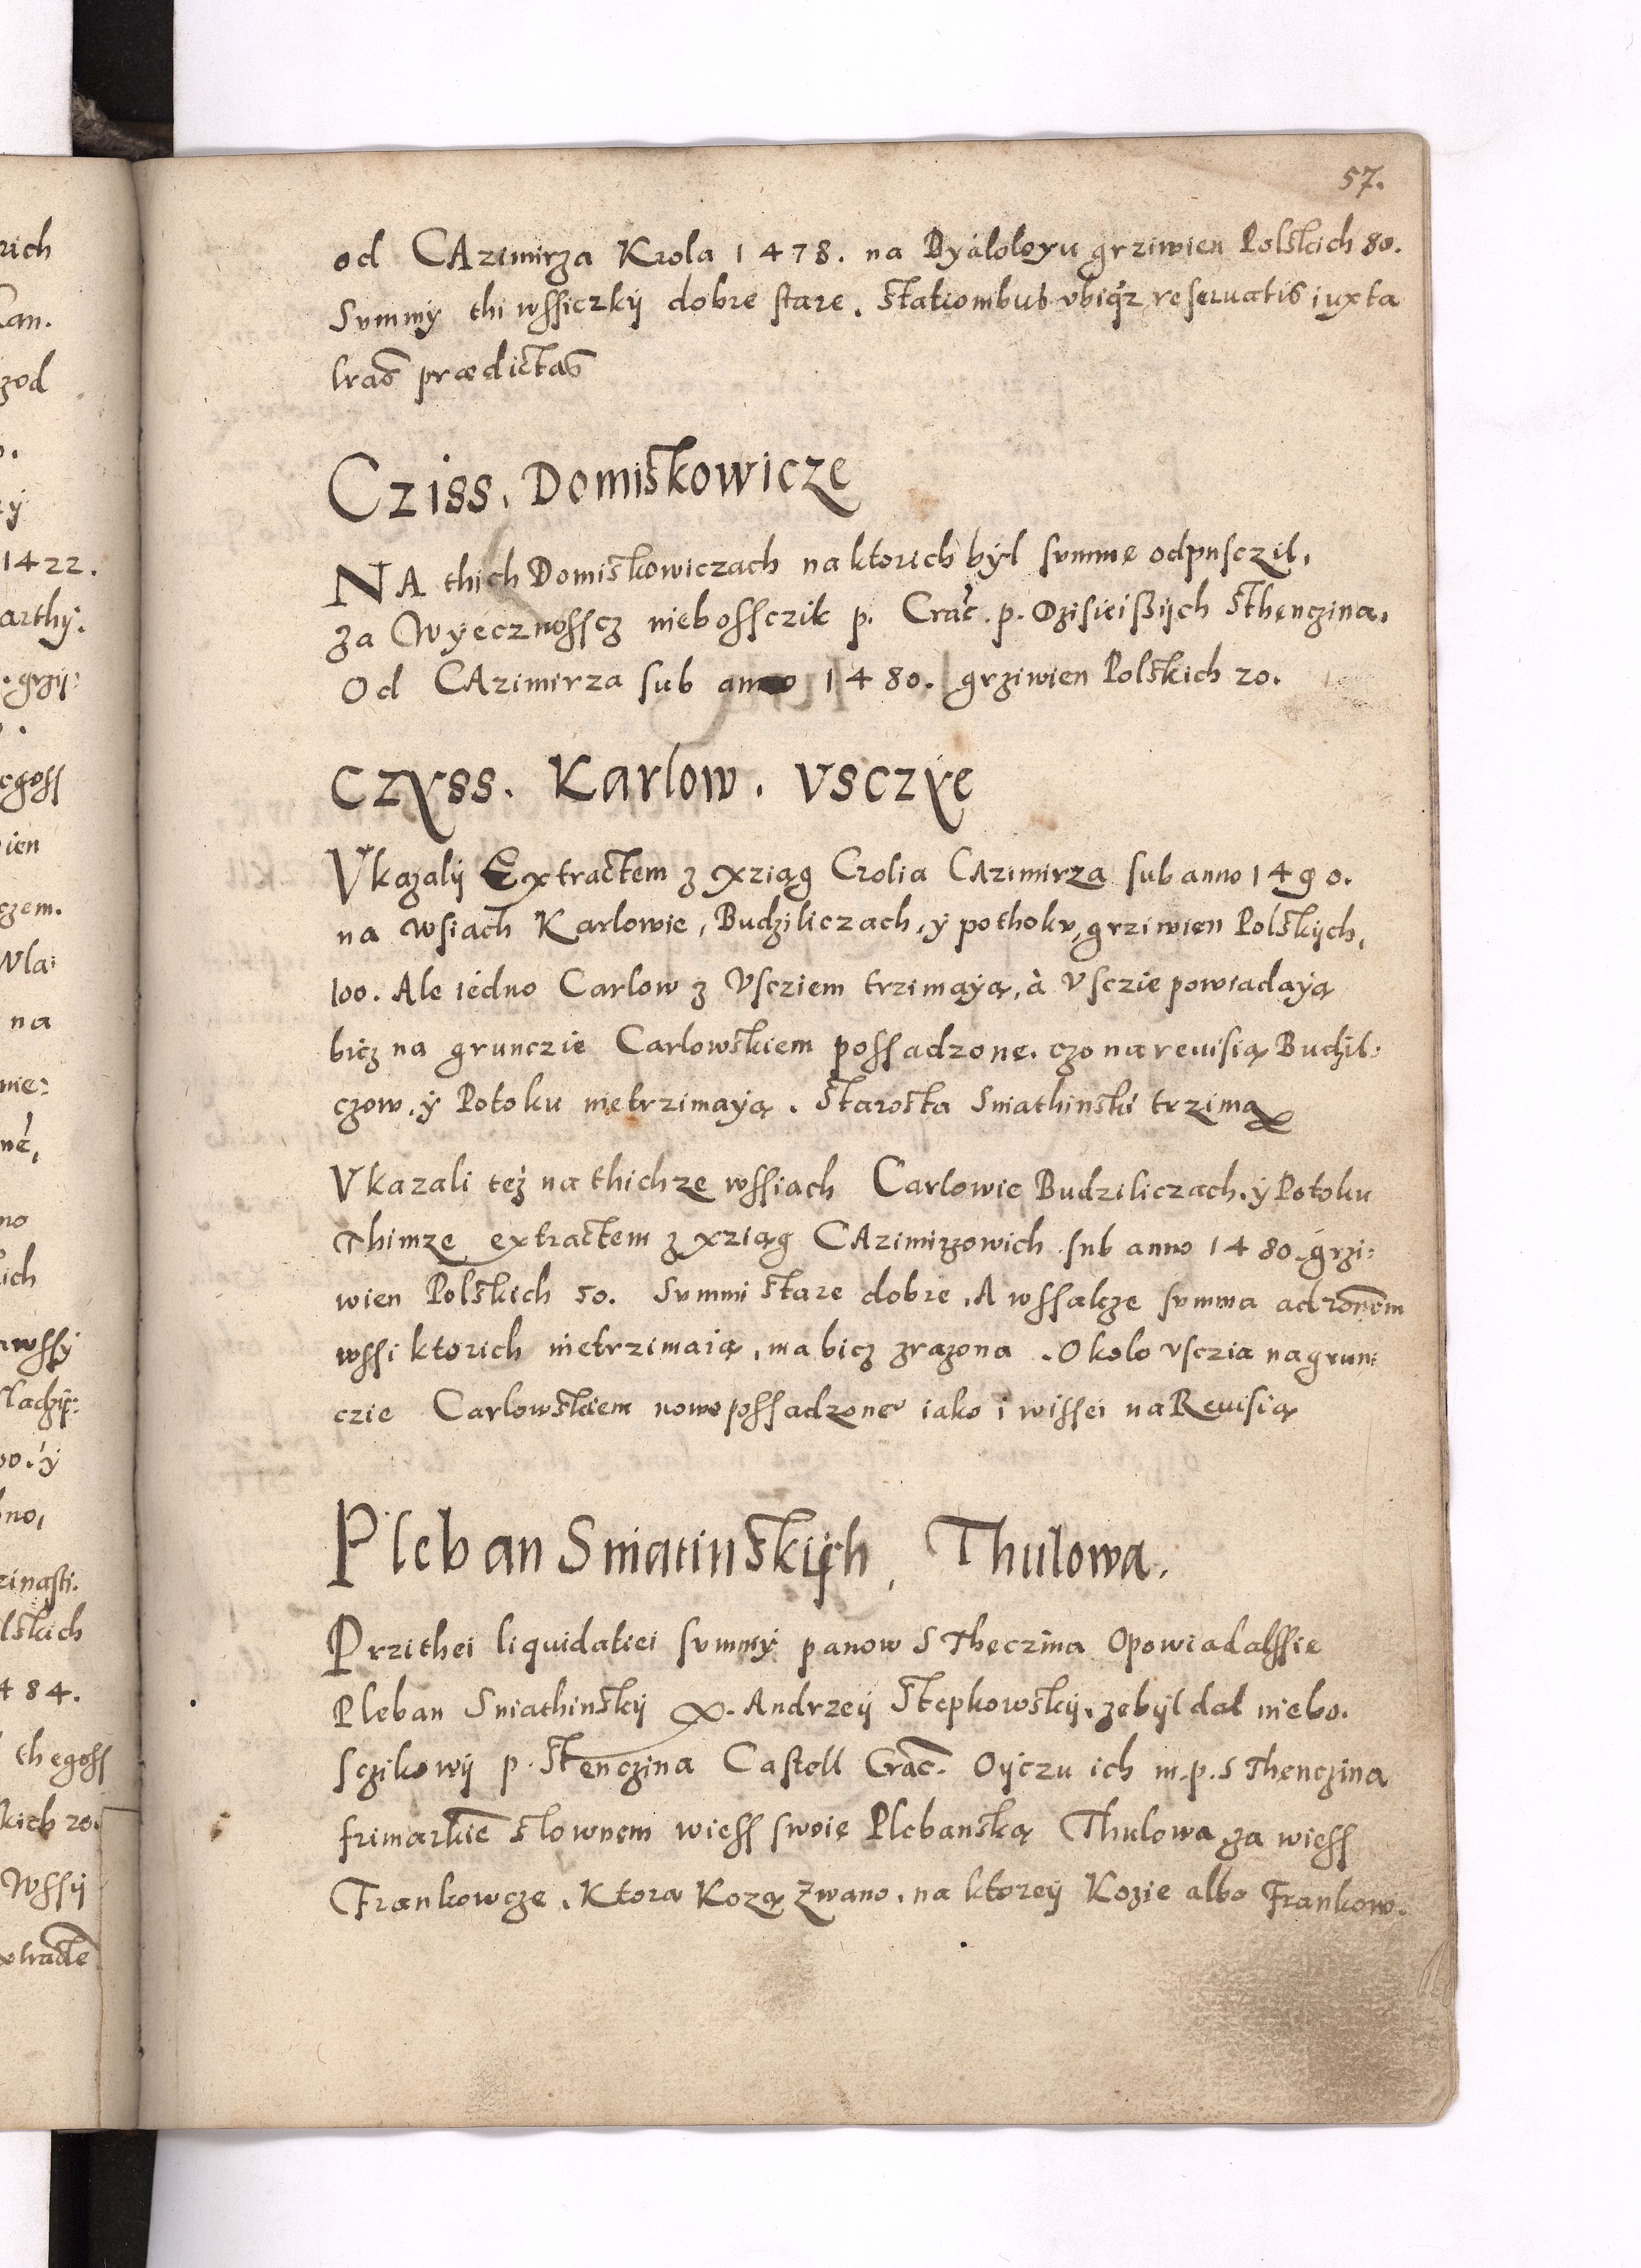 57.
od CAzimirza Krola 1478. na Dyáloloxu grziwien Polskich 80.
Summÿ thi wssiczkÿ dobre stare. Stationibus vbiqz reseruatis iuxta
lras prædictas
Cziss. Domiskowicze
NA thich Domiskowiczach na ktorich bÿl summe odpusczil,
za Wyecznosscz niebossczik p. Crac. p. Dzisieißÿch Sthenczina.
Od CAzimirza sub anno 1480. grziwien Polskich 20.
Czyss. Karlow. Vsczye
Vkazalÿ Extractem z xziąg Crolia CAzimirza sub anno 1490.
na wsiach Karlowie, Budziliczach, ÿ pothoku, grziwien Polskÿch,
100. Ale iedno Carlow z Vscziem trzimaÿą, à Vsczie powiadaÿą
bicz na grunczie Carlowskiem possadzone. czo na reuisią Budzil:
czow, ÿ Potoku nietrzimaÿą. Starosta Sniathinski trzima
Vkazali też na thichze wssiach Carlowie Budziliczach, ÿ Potoku
Thimze extractem z xziąg CAzimirzowich sub anno 1480. grzi:
wien Polskich 50. Summi stare dobre, A wssakze summa ad ronem
wssi ktorich nietrzimaią, ma bicz zrazona. Okolo vsczia na grun:
czie Carlowskiem nowo possadzone iako i wissei na Reuisią
Pleban Sniatinskÿch, Thulowa.
Przithei liquidatiei summÿ panow SThęczina Opowiadalssie
Pleban Sniathinskÿ X. Andrzeÿ Stepkowskÿ, ze bÿl dal niebo.
sczikowÿ p. Stenczina Castell Crac. Oÿczu ich m. p. SThenczina
frimarkie slownem wiess swoię Plebanską Thulowa za wiess
Frankowcze, Ktora Kozą Zwano, na ktoreÿ Kozie albo Frankow.